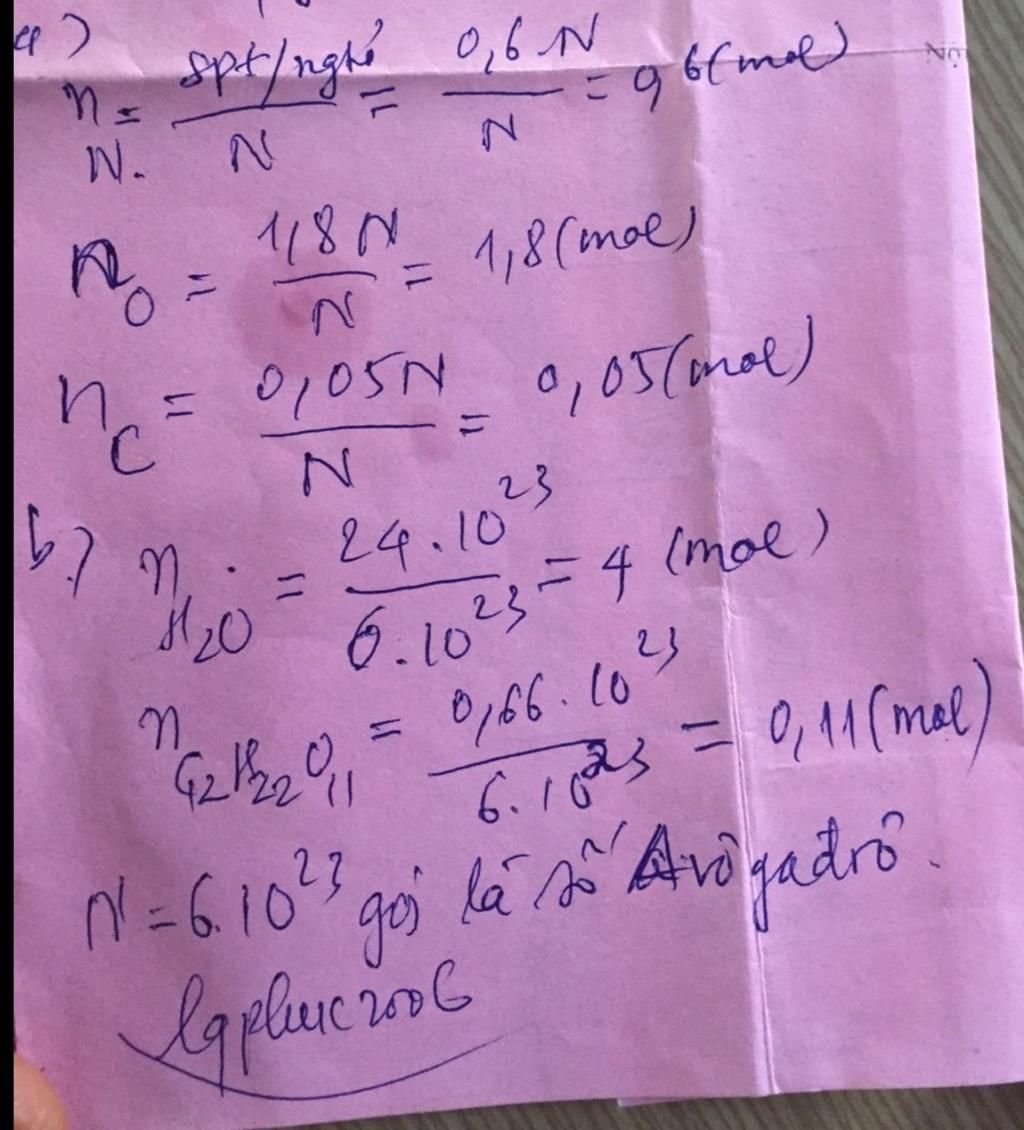 a)
n_N = spt/ngtử / N = 0,6 N / N = 0,6 (mol)
n_O = 1,8 N / N = 1,8 (mol)
n_C = 0,05N / N = 0,05 (mol)
b) n_H₂O = 24.10²³ / 6.10²³ = 4 (mol)
n_C₁₂H₂₂O₁₁ = 0,66.10²³ / 6.10²³ = 0,11 (mol)
N = 6.10²³ gọi là số Avôgađrô.
lqphuc2006